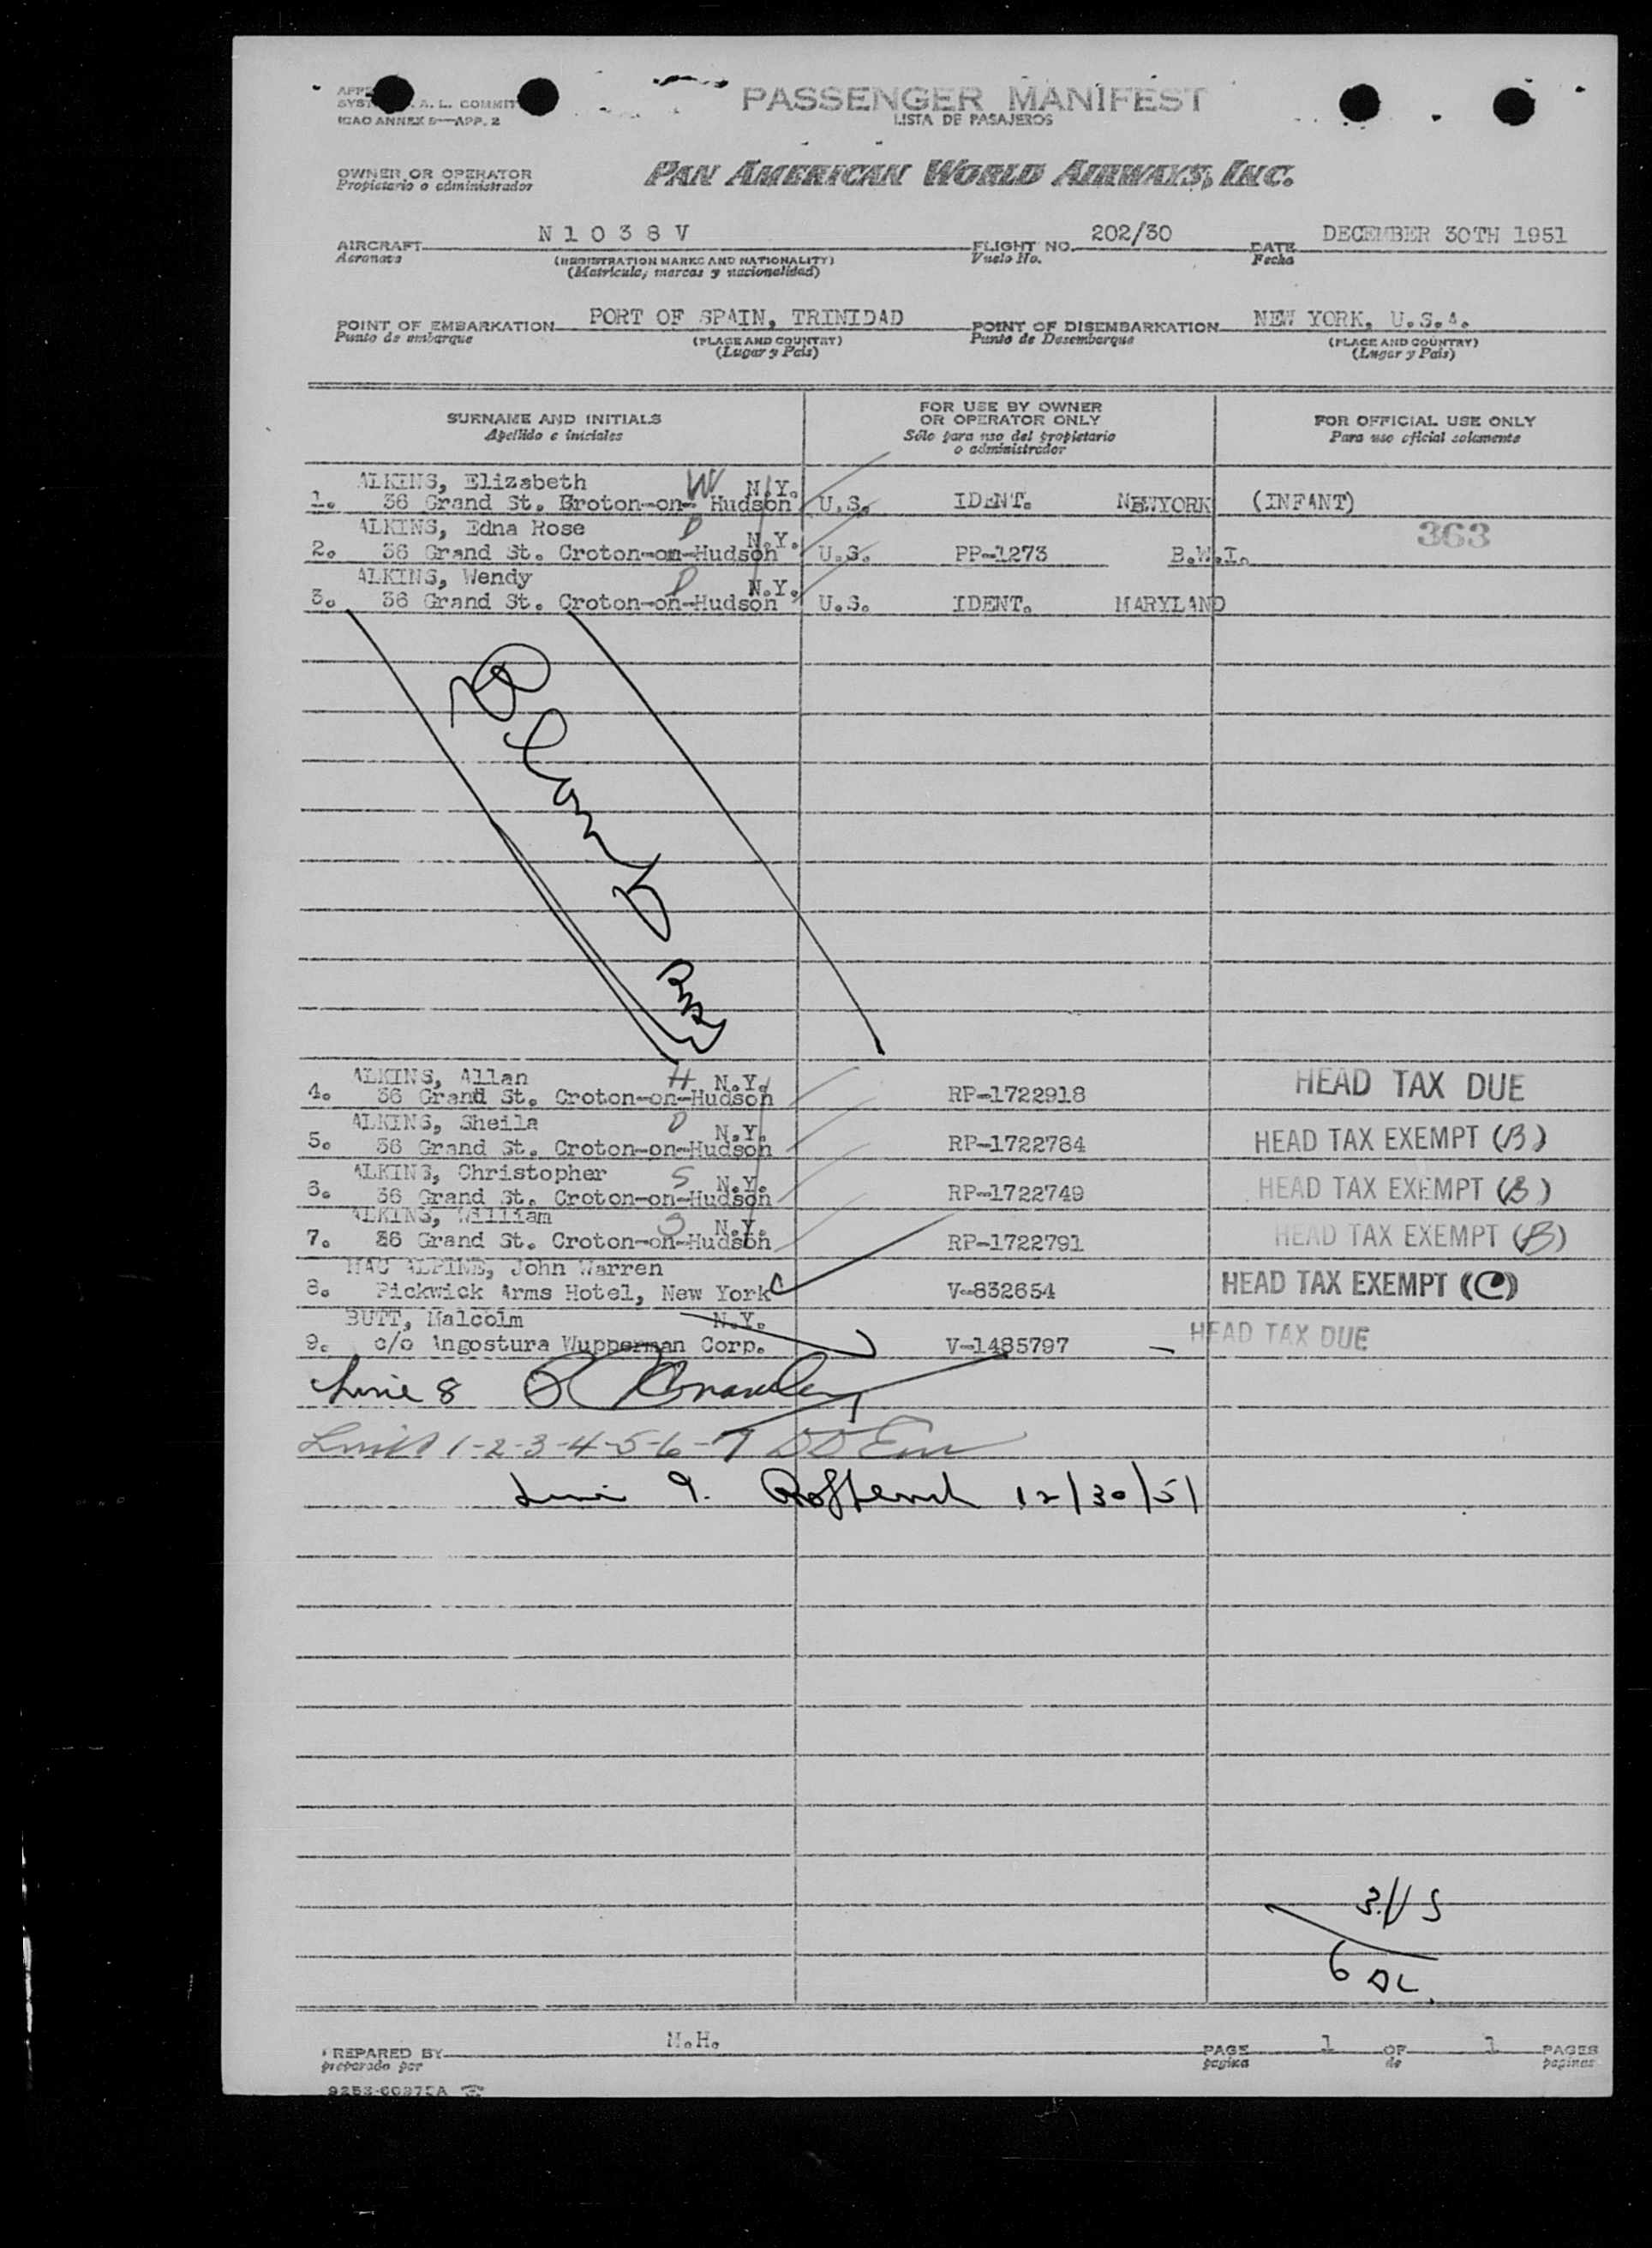 PASSENGER MANIFEST
LISTA DE PASAJEROS
A. L. COMMIT
ICAO ANNEX 9—APP. 2
OWNER OR OPERATOR
Propietario o administrador
PAN AMERICAN WORLD AIRWAYS, INC.
AIRCRAFT N 1 0 3 8 V FLIGHT NO. 202/30 DATE DECEMBER 30TH 1951
Aeronave (REGISTRATION MARKS AND NATIONALITY) Vuelo No. Fecha
(Matricula, marcas y nacionalidad)
POINT OF EMBARKATION PORT OF SPAIN, TRINIDAD POINT OF DISEMBARKATION NEW YORK, U.S.A.
Punto de embarque (PLACE AND COUNTRY) Punto de Desembarque (PLACE AND COUNTRY)
(Lugar y Pais) (Lugar y Pais)
SURNAME AND INITIALS FOR USE BY OWNER OR OPERATOR ONLY FOR OFFICIAL USE ONLY
Apellido e iniciales Sólo para uso del propietario o administrador Para uso oficial solamente
ALKINS, Elizabeth W N.Y.
1. 36 Grand St. Croton-on- Hudson U.S. IDENT. NEWYORK (INFANT)
ALKINS, Edna Rose D N.Y. 363
2. 36 Grand St. Croton-on-Hudson U.S. PP-1273 B.W.I.
ALKINS, Wendy D N.Y.
3. 36 Grand St. Croton-on-Hudson U.S. IDENT. MARYLAND
ALKINS, Allan H N.Y.
4. 36 Grand St. Croton-on-Hudson RP-1722918 HEAD TAX DUE
ALKINS, Sheila D N.Y.
5. 36 Grand St. Croton-on-Hudson RP-1722784 HEAD TAX EXEMPT (B)
ALKINS, Christopher S N.Y.
6. 36 Grand St. Croton-on-Hudson RP-1722749 HEAD TAX EXEMPT (B)
ALKINS, William S N.Y.
7. 36 Grand St. Croton-on-Hudson RP-1722791 HEAD TAX EXEMPT (B)
MAC ALPINE, John Warren
8. Pickwick Arms Hotel, New York V-832654 HEAD TAX EXEMPT (C)
BUTT, Malcolm N.Y.
9. c/o Angostura Wupperman Corp. V-1485797 HEAD TAX DUE
Line 8
Lines 1-2-3-4-5-6-7
Line 9. 12/30/51
6
PREPARED BY M.H. PAGE 1 OF 1 PAGES
preparado por pagina de paginas